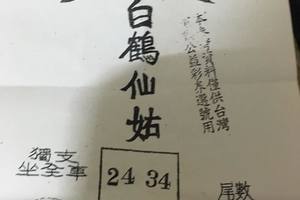 白鶴仙姑
資料僅供台灣
公益彩券選號用
獨支
坐全車
24 34
尾數